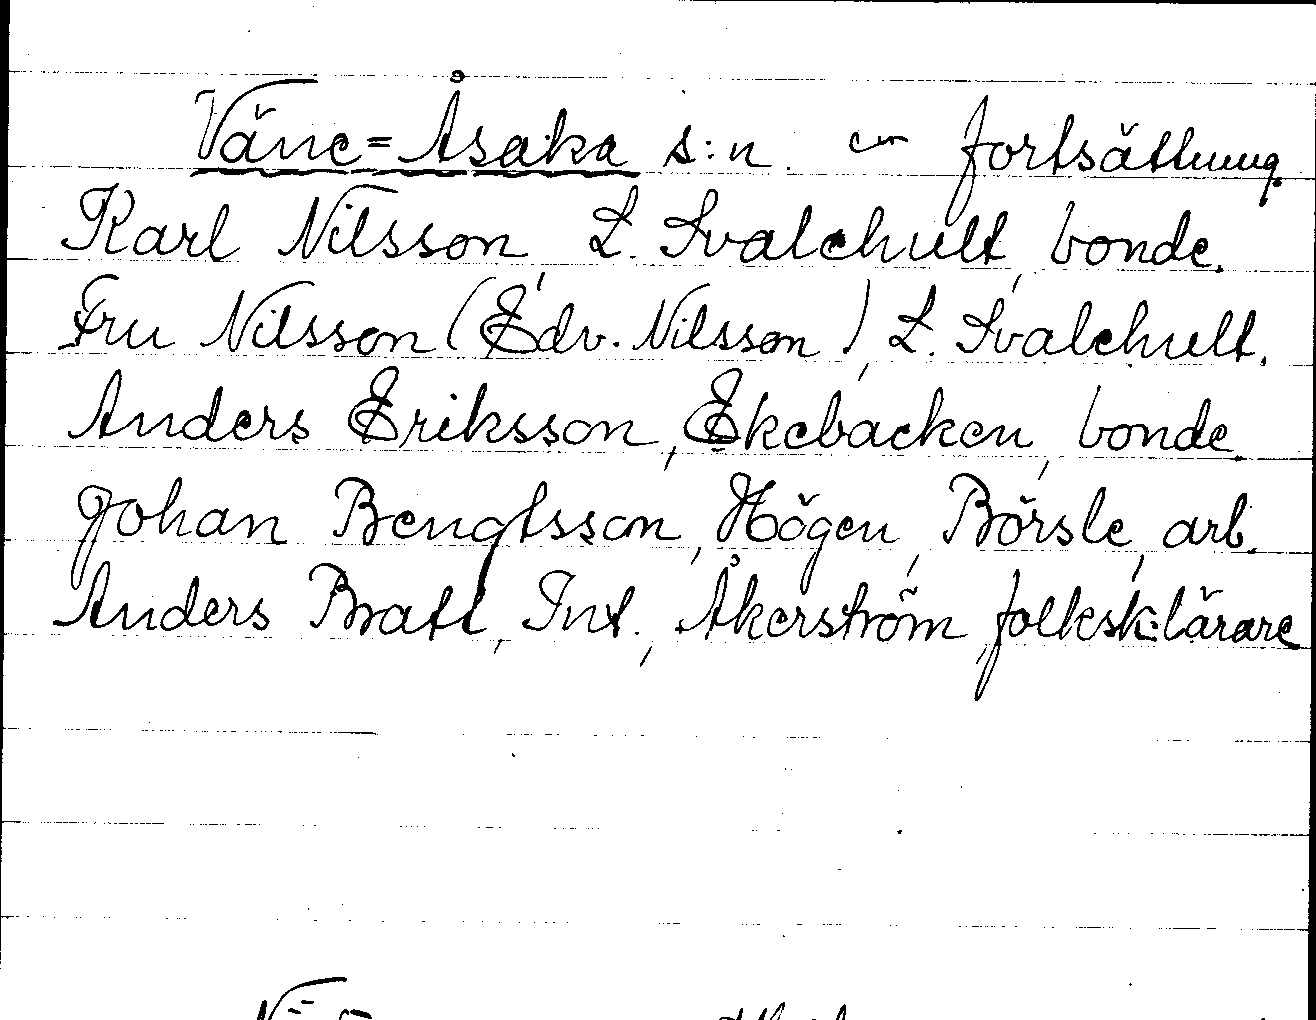 Väne=Åsaka s:n. — fortsättning.
Karl Nilsson, L. Svalehult, bonde.
Fru Nilsson (Edv. Nilsson), L. Svalehult.
Anders Eriksson, Ekebacken, bonde.
Johan Bengtsson, Högen, Börsle, arb.
Anders Bratt, Int., Åkerström, folksk:lärare